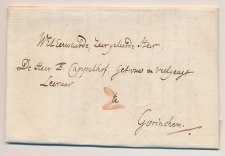 Wel Eerwaarde, Zeer geleerde Heer,
De Heer B. Cappelhof. Getrouw en veelgeagt
Leeraar
te
Gorinchem.